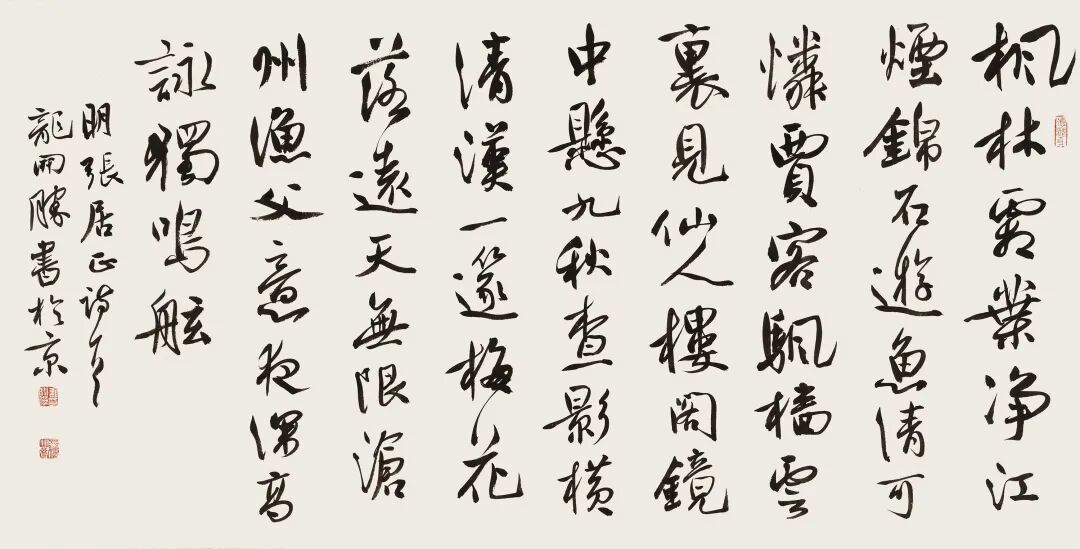 楓林霜葉淨江
煙錦石遊魚清可
憐賈客颿檣雲
裏見仙人樓閣鏡
中懸九秋查影橫
清漢一篴梅花
落遠天無限滄
州漁父意夜深高
詠獨鳴舷
明張居正詩
龍開勝書於京